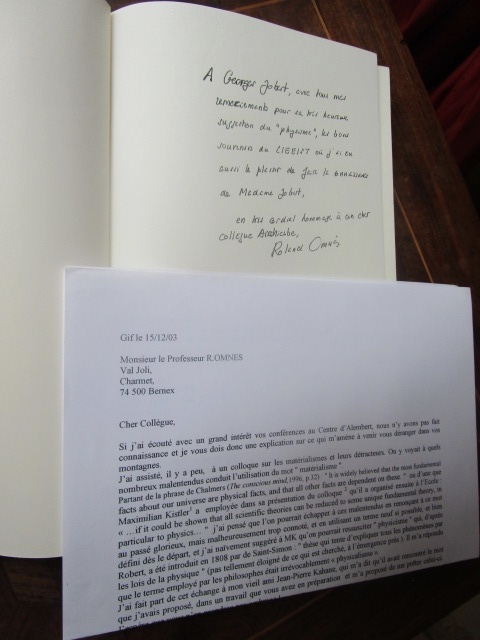 A Georges Jobert, avec tous mes
remerciements pour sa très heureuse
suggestion du "physisme", les bons
souvenirs du où j'ai eu
aussi le plaisir de faire la connaissance
de Madame Jobert,
en très cordial hommage à un cher
collègue
Roland Omnès
Gif le 15/12/03
Monsieur le Professeur R.OMNES
Val Joli,
Charmet,
74 500 Bernex
Cher Collègue,
Si j'ai écouté avec un grand intérêt vos conférences au Centre d'Alembert, nous n'y avons pas fait
connaissance et je vous dois donc une explication sur ce qui m'amène à venir vous déranger dans vos
montagnes.
J'ai assisté, il y a peu, à un colloque sur les matérialismes et leurs détracteurs. On y voyait à quels
nombreux malentendus conduit l'utilisation du mot " matérialisme "
Partant de la phrase de Chalmers (The conscious mind,1996, p.32) " It is widely believed that the most fundamental
facts about our universe are physical facts, and that all other facts are dependent on these. " ou d'une que
Maximilian Kistler a employée dans sa présentation du colloque " qu'il a organisé ensuite à l'Ecole :
« ... if it could be shown that all scientific theories can be reduced to some unique fundamental theory, in
particular to physics... " j'ai pensé que l'on pourrait échapper à ces malentendus en renonçant à ce mot
au passé glorieux, mais malheureusement trop connoté, et en utilisant un terme neuf si possible, et bien
défini dès le départ, et j'ai naïvement suggéré à MK qu'on pourrait ressusciter " physicisme " qui, d'après
Robert, a été introduit en 1808 par de Saint-Simon : " thèse qui tente d'expliquer tous les phénomènes par
les lois de la physique " (pas tellement éloigné de ce qui est cherché, à l'émergence près ). Il m'a répondu
que le terme employé par les philosophes était irrévocablement « physicalisme ».
J'ai fait part de cet échange à mon vieil ami Jean-Pierre Kahane, qui m'a dit qu'il avait rencontré le mot
que j'avais proposé, dans un travail que vous avez en préparation et m'a proposé de me prêter celui-ci.